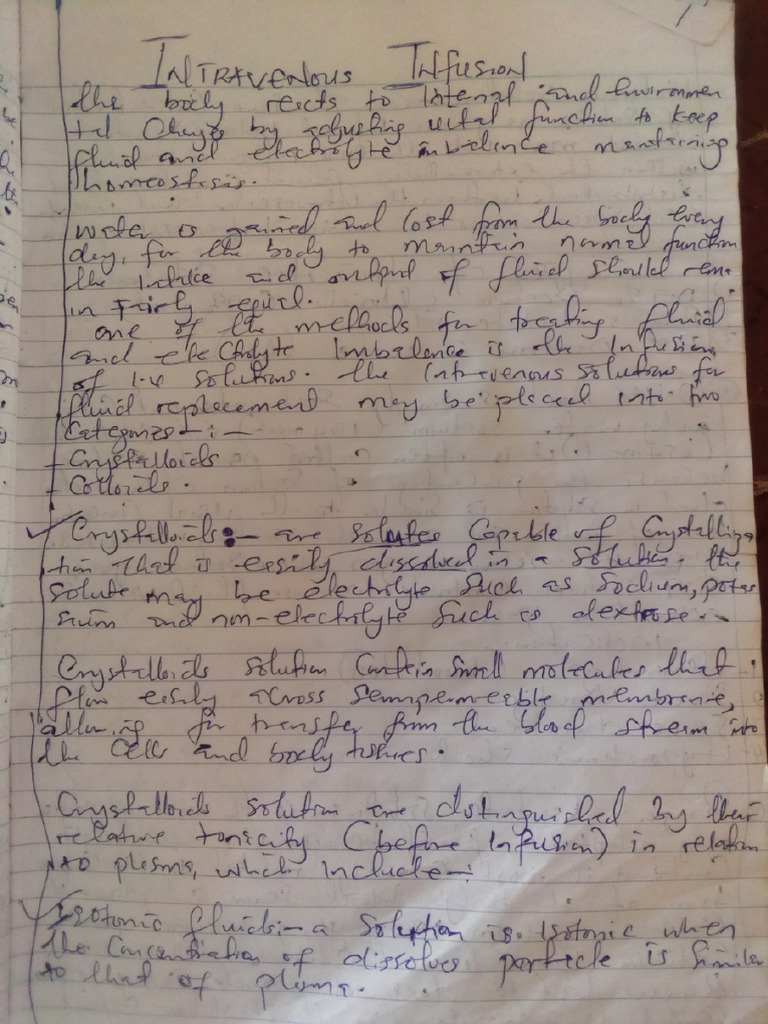 1
INTRAVENOUS INFUSION
the body reacts to Internal and Environmen
tal Changes by adjusting vital function to keep
fluid and electrolyte imbalance maintaining
homeostasis.
water is gained and lost from the body every
day, for the body to maintain normal function
the intake and output of fluid should rema
in Fairly equal.
one of the methods for treating fluid
and electrolyte Imbalance is the Infusion
of I.V solutions. the Intravenous solutions for
fluid replacement may be placed into two
Categories -: -
- Crystalloids
- Colloids.
Crystalloids:- are solutes Capable of Crystalliza
tion That is easily dissolved in a solution. the
solute may be electrolyte Such as Sodium, potas
sium and non-electrolyte Such as dextrose.
Crystalloids solution Contain small molecules that
flow easily across semipermeable membrane,
allowing for transfer from the blood stream into
the Cells and body tissues.
Crystalloids solution are distinguished by their
relative tonicity (before Infusion) in relation
to plasma, which include-:
Isotonic fluids:- a Solution is Isotonic when
the Concentration of dissolves particle is similar
to that of plasma.